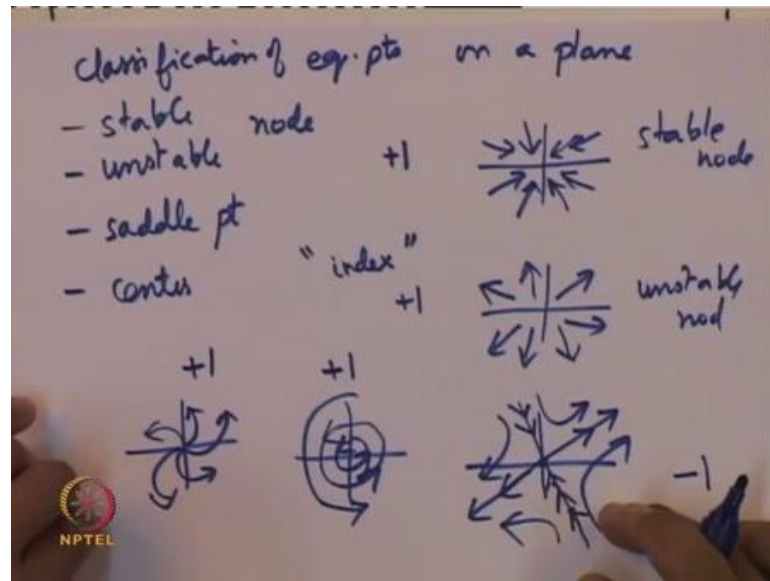 classification of eq. pts on a plane
- stable node
- unstable
- saddle pt
- center
"index"
+1 stable node
+1 unstable nod
+1 +1
-1
NPTEL